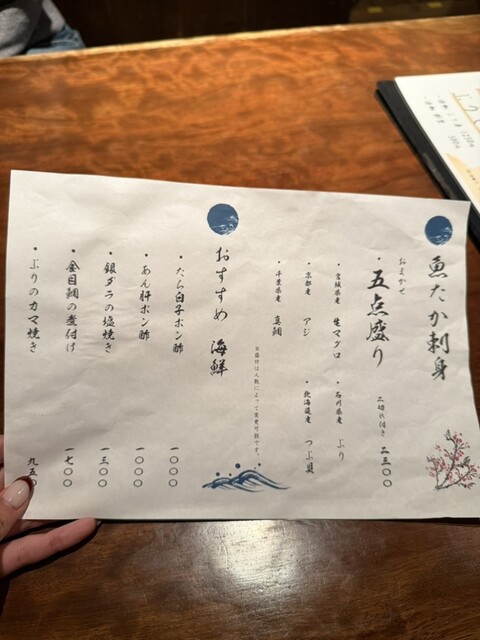 魚たか刺身
・おまかせ 五点盛り 二切れ付き 二三〇〇
・宮城県産 生マグロ ・石川県産 ぶり
・京都産 アジ ・北海道産 つぶ貝
・千葉県産 真鯛
※盛付けは人数によって変更可能です。
おすすめ 海鮮
・たら白子ポン酢 一〇〇〇
・あん肝ポン酢 一〇〇〇
・銀ダラの塩焼き 一三〇〇
・金目鯛の煮付け 一七〇〇
・ぶりのカマ焼き 九五〇